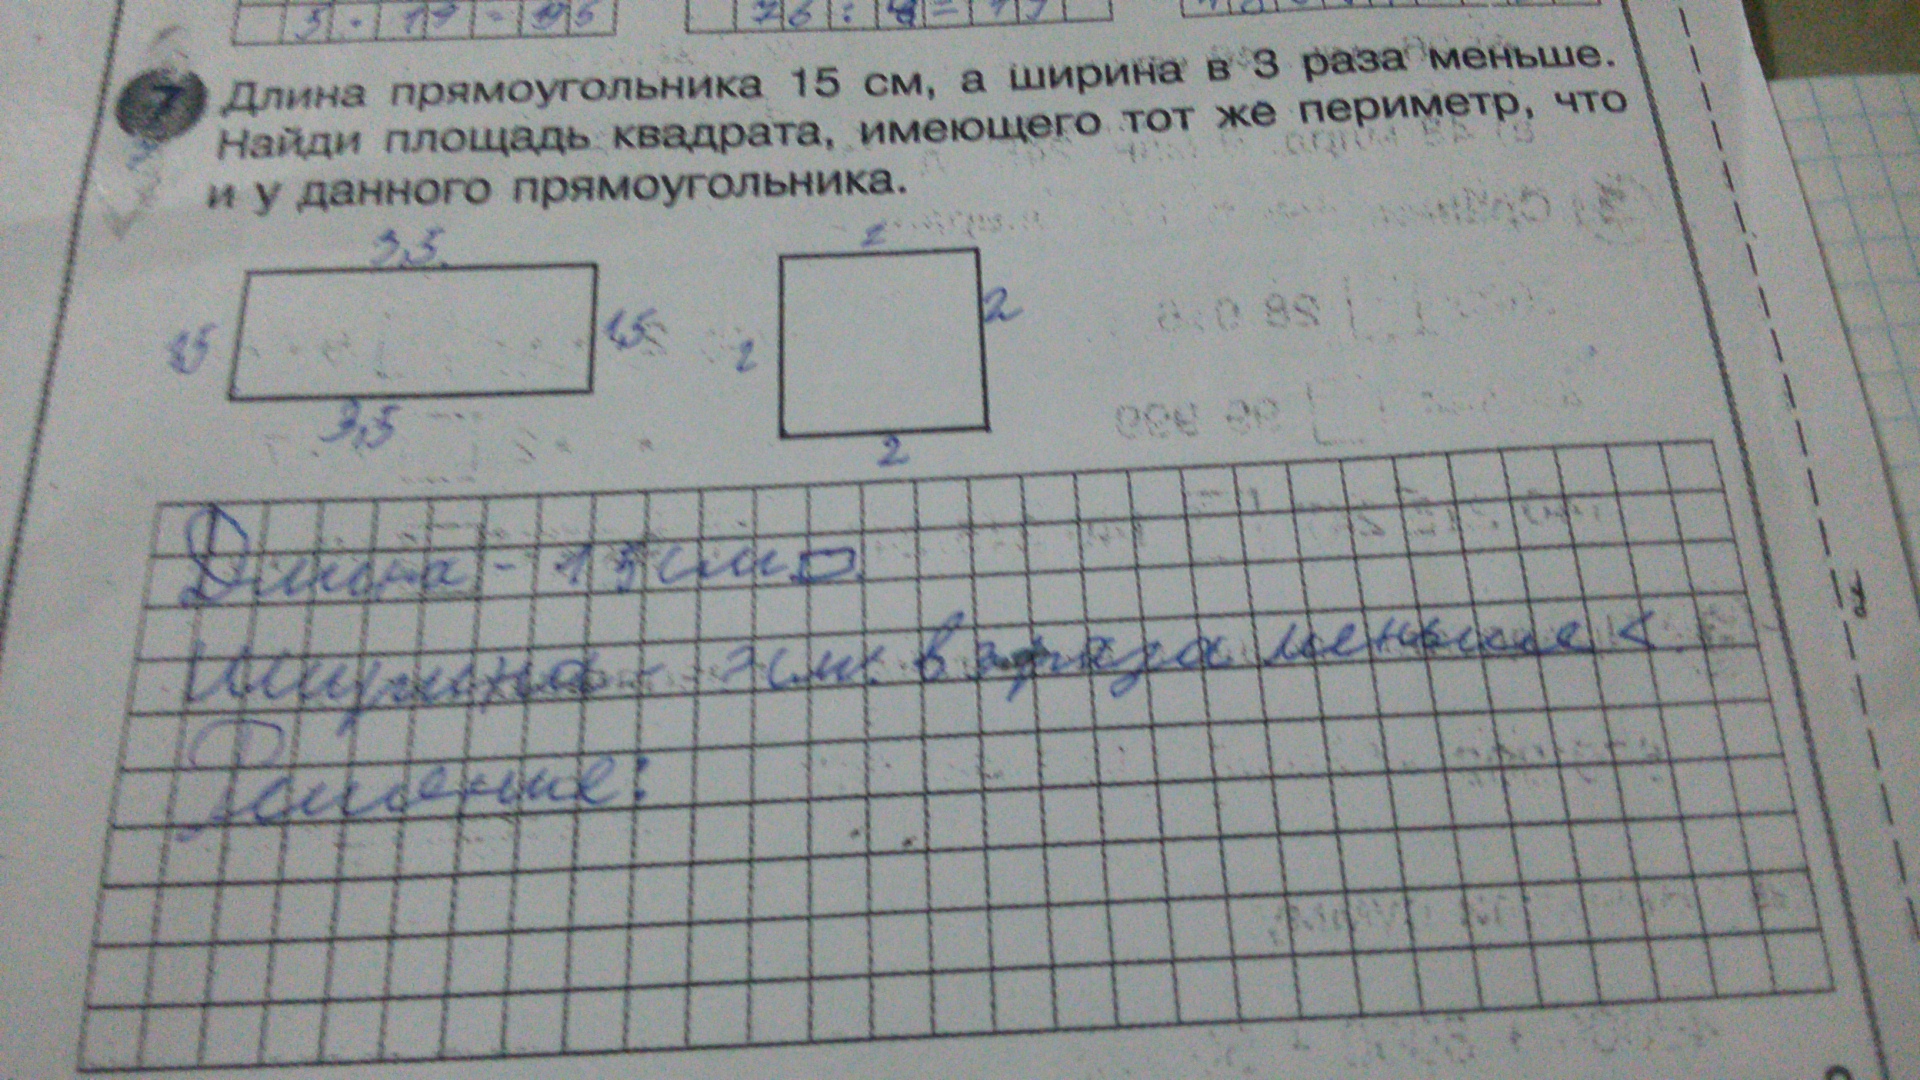 5 · 19 = 95
76 : 4 = 19
7 Длина прямоугольника 15 см, а ширина в 3 раза меньше.
Найди площадь квадрата, имеющего тот же периметр, что
и у данного прямоугольника.
3,5
2
1,5
1,5
2
2
3,5
2
Длина - 15 см
Ширина - ? см. в 3 раза меньше <
Решение: